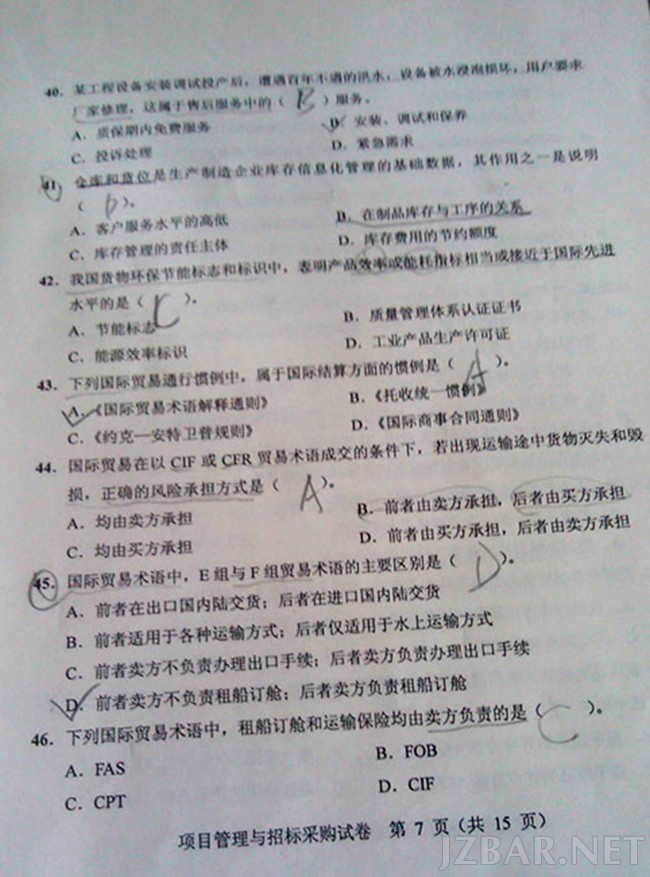 40. 某工程设备安装调试投产后，遭遇百年不遇的洪水，设备被水浸泡损坏，用户要求
厂家修理，这属于售后服务中的（ B ）服务。
A. 质保期内免费服务 B. 安装、调试和保养
C. 投诉处理 D. 紧急需求
41. 仓库和货位是生产制造企业库存信息化管理的基础数据，其作用之一是说明
（ D ）。
A. 客户服务水平的高低 B. 在制品库存与工序的关系
C. 库存管理的责任主体 D. 库存费用的节约额度
42. 我国货物环保节能标志和标识中，表明产品效率或能耗指标相当或接近于国际先进
水平的是（ C ）。
A. 节能标志 B. 质量管理体系认证证书
C. 能源效率标识 D. 工业产品生产许可证
43. 下列国际贸易通行惯例中，属于国际结算方面的惯例是（ A ）。
A. 《国际贸易术语解释通则》 B. 《托收统一惯例》
C. 《约克—安特卫普规则》 D. 《国际商事合同通则》
44. 国际贸易在以 CIF 或 CFR 贸易术语成交的条件下，若出现运输途中货物灭失和毁
损，正确的风险承担方式是（ A ）。
A. 均由卖方承担 B. 前者由卖方承担，后者由买方承担
C. 均由买方承担 D. 前者由买方承担，后者由卖方承担
45. 国际贸易术语中，E 组与 F 组贸易术语的主要区别是（ D ）。
A. 前者在出口国内陆交货；后者在进口国内陆交货
B. 前者适用于各种运输方式；后者仅适用于水上运输方式
C. 前者卖方不负责办理出口手续；后者卖方负责办理出口手续
D. 前者卖方不负责租船订舱；后者卖方负责租船订舱
46. 下列国际贸易术语中，租船订舱和运输保险均由卖方负责的是（ C ）。
A. FAS B. FOB
C. CPT D. CIF
项目管理与招标采购试卷 第 7 页（共 15 页）
JZBAR.NET